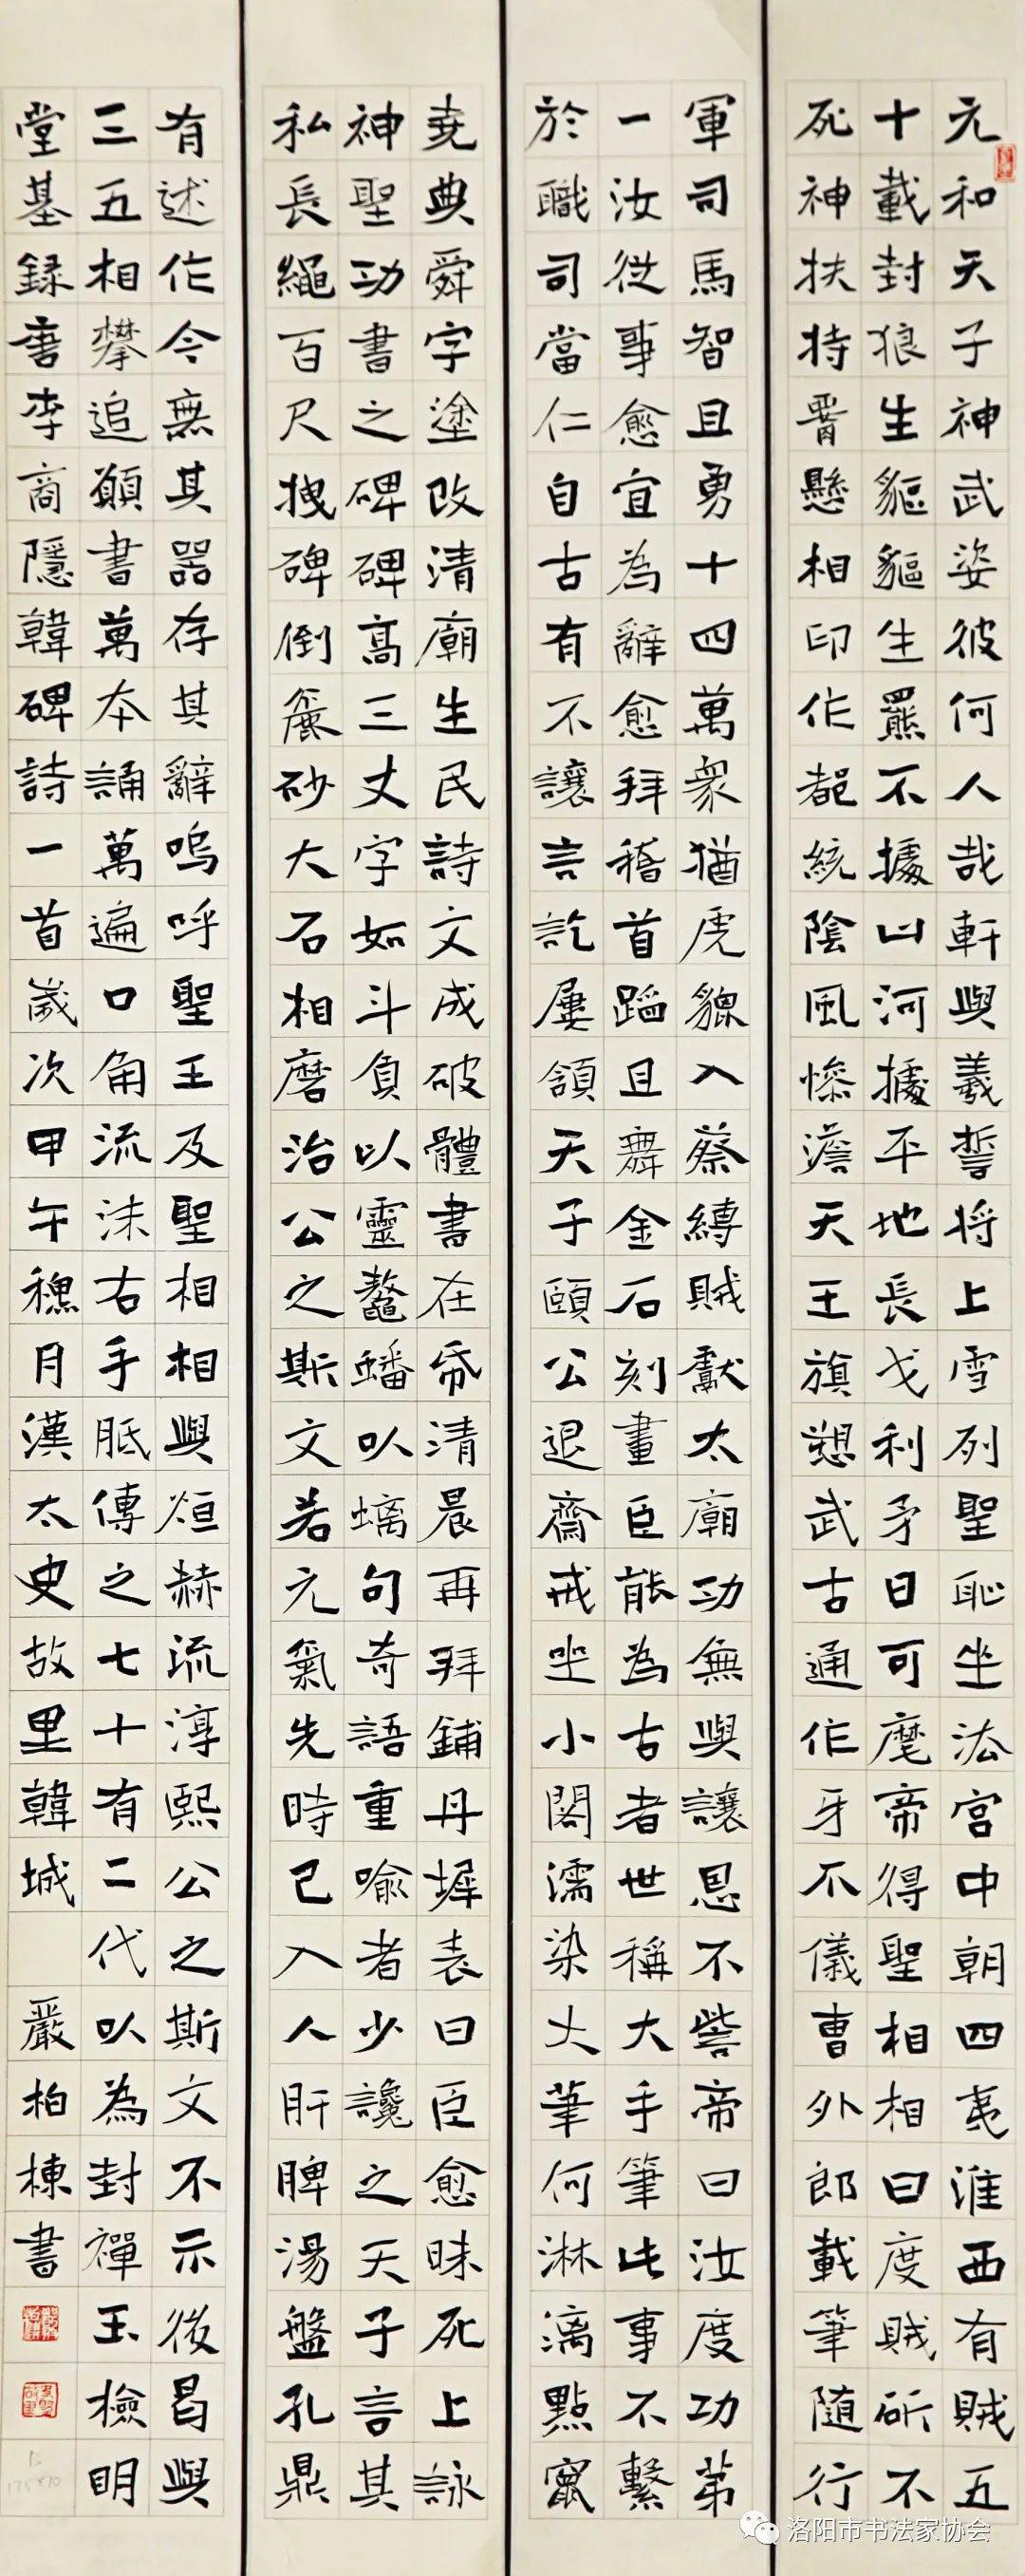 元和天子神武姿彼何人哉軒與羲誓将上雪列聖恥坐法宮中朝四夷淮西有賊五
十載封狼生貙貙生羆不據山河據平地長戈利矛日可麾帝得聖相相曰度賊斫不
死神扶持腰懸相印作都統陰風慘澹天王旗愬武古通作牙不儀曹外郎載筆随行
軍司馬智且勇十四萬衆猶虎貔入蔡縛賊獻太廟功無與讓恩不訾帝曰汝度功第
一汝從事愈宜為辭愈拜稽首蹈且舞金石刻畫臣能為古者世稱大手筆此事不繫
於職司當仁自古有不讓言訖屢頷天子頤公退齋戒坐小閣濡染大筆何淋漓點竄
堯典舜字塗改清廟生民詩文成破體書在帋清晨再拜鋪丹墀表曰臣愈昧死上詠
神聖功書之碑碑高三丈字如斗負以靈鼇蟠以螭句奇語重喻者少讒之天子言其
私長繩百尺拽碑倒麁砂大石相磨治公之斯文若元氣先時已入人肝脾湯盤孔鼎
有述作今無其器存其辭嗚呼聖王及聖相相與烜赫流淳熙公之斯文不示後曷與
三五相攀追願書萬本誦萬遍口角流沫右手胝傳之七十有二代以為封禪玉檢明
堂基録唐李商隱韓碑詩一首歲次甲午穐月漢太史故里韓城 嚴柏棟書
洛阳市书法家协会